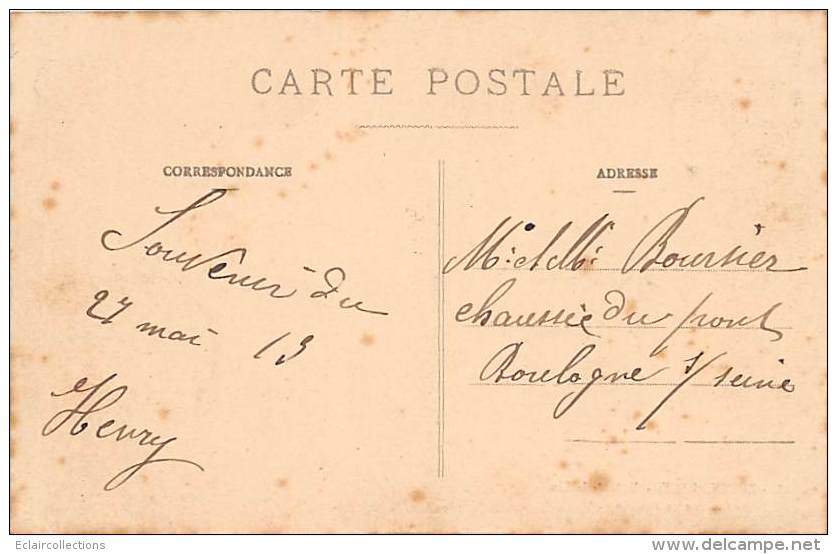 CARTE POSTALE
CORRESPONDANCE
Souvenir du
27 mai 13
Henry
ADRESSE
Mr et Me Boursier
chaussée du pont
Boulogne s/ seine
Eclaircollections
delcampe.net